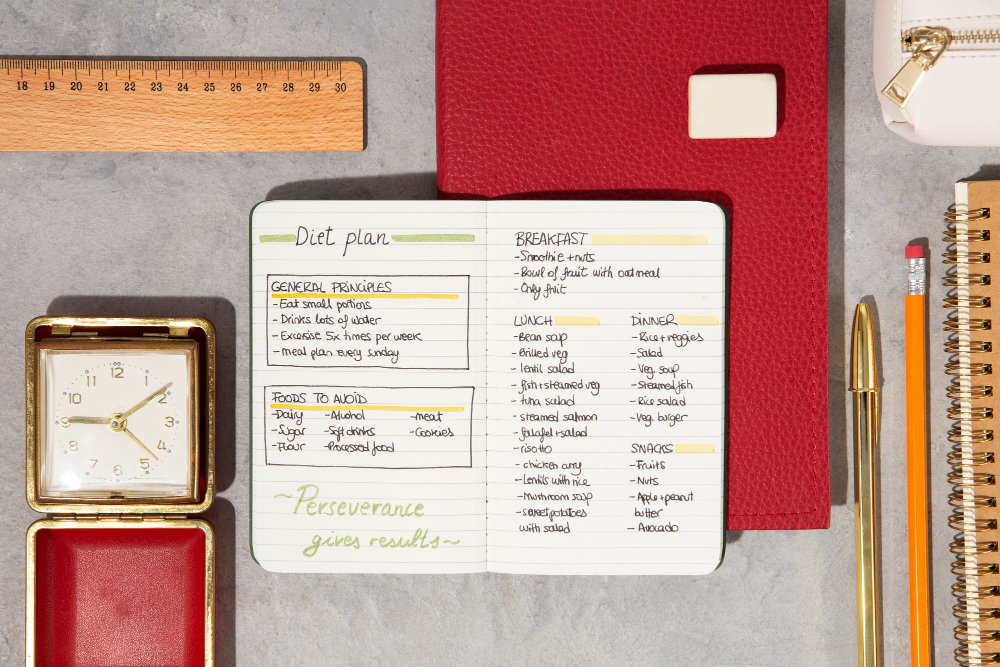 18 19 20 21 22 23 24 25 26 27 28 29 30
Diet plan
GENERAL PRINCIPLES
- Eat small portions
- Drinks lots of water
- Excersise 5x times per week
- meal plan every sunday
FOODS TO AVOID
- Dairy - Alcohol - meat
- Sugar - Soft drinks - Cookies
- Flour - Processed food
~Perseverance
gives results~
BREAKFAST
- Smoothie + nuts
- Bowl of fruit with oatmeal
- Only fruit
LUNCH
- Bean soup
- Grilled veg
- lentil salad
- fish + steamed veg
- tuna salad
- steamed salmon
- falafel + salad
- risotto
- chicken curry
- Lentils with rice
- Mushroom soup
- sweet potatoes
with salad
DINNER
- Rice + veggies
- Salad
- Veg. soup
- Steamed fish
- Rice salad
- Veg. burger
SNACKS
- Fruits
- Nuts
- Apple + peanut
butter
- Avocado
12
1
2
3
4
5
6
7
8
9
10
11